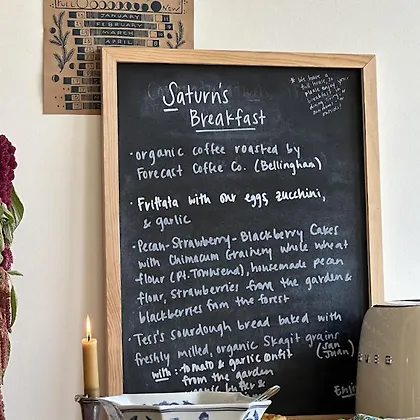 FULL NEW
JANUARY
FEBRUARY
MARCH
APRIL
Saturn's
Breakfast
* We have a
full house, so
please enjoy
breakfast in
dining, living,
sun room or
outside!
· organic coffee roasted by
Forecast Coffee Co. (Bellingham)
· Frittata with our eggs, zucchini,
& garlic
· Pecan-Strawberry-Blackberry Cakes
with Chimacum Grainery whole wheat
flour (Pt. Townsend), housemade pecan
flour, strawberries from the garden &
blackberries from the forest
· Tesi's sourdough bread baked with
freshly milled, organic Skagit grains
(San Juan)
with: tomato & garlic confit
from the garden
organic butter &